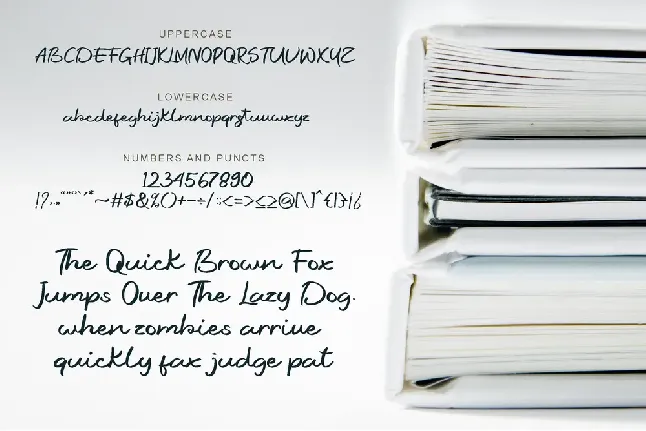 UPPERCASE
ABCDEFGHIJKLMNOPQRSTUVWXYZ
LOWERCASE
abcdefghijklmnopqrstuvwxyz
NUMBERS AND PUNCTS
1234567890
~#$&%()+-÷/:<=>≤≥@[\]^{|}
The Quick Brown Fox
Jumps Over The Lazy Dog.
when zombies arrive
quickly fax judge pat